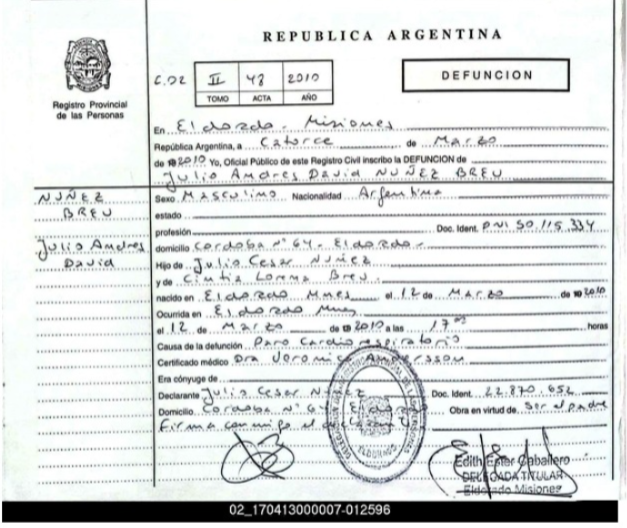 REPUBLICA ARGENTINA
C.02 II 43 2010
TOMO ACTA AÑO
DEFUNCION
Registro Provincial
de las Personas
En Eldorado - Misiones
República Argentina, a Catorce de Marzo
de 2010 Yo, Oficial Público de este Registro Civil inscribo la DEFUNCION de
Julio Andres David NUÑEZ BREU
NUÑEZ
BREU
Julio Andres
David
Sexo Masculino Nacionalidad Argentina
estado
profesión Doc. Ident. DNI 50.115.334
domicilio Cordoba N° 64 - Eldorado
Hijo de Julio Cesar Nuñez
y de Cintia Lorena Breu
nacido en Eldorado Mnes el 12 de Marzo de 2010
Ocurrida en Eldorado Mnes
el 12 de Marzo de 2010 a las 17 horas
Causa de la defunción Paro Cardiorespiratorio
Certificado médico Dra Veronica Andersson
Era cónyuge de
Declarante Julio Cesar Nuñez Doc. Ident. 22.870.652
Domicilio Cordoba N° 64 Eldorado Obra en virtud de Ser el padre
Firma conmigo el declarante
Edith Ester Caballero
DELEGADA TITULAR
Eldorado Misiones
02_170413000007-012596